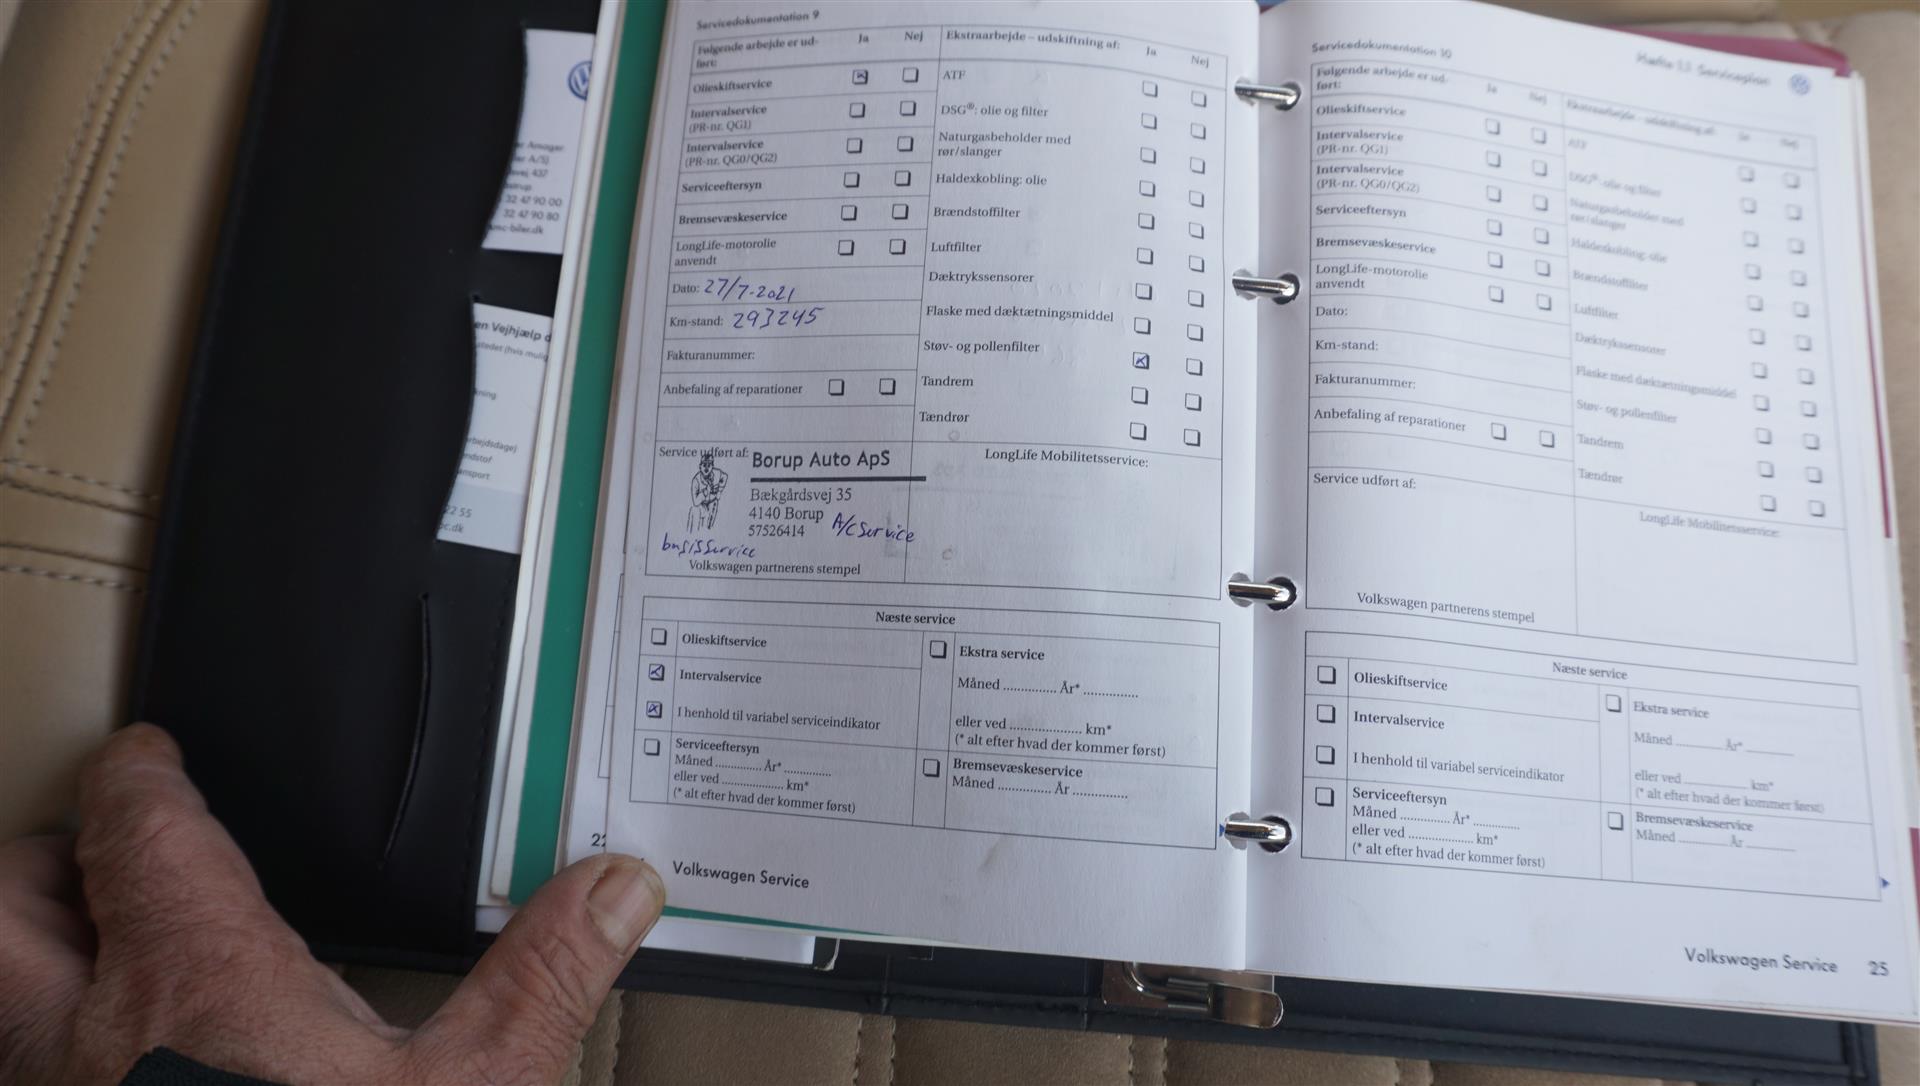 er Amager
er A/S)
vej 437
strup
32 47 90 00
32 47 90 80
mc-biler.dk
en Vejhjælp d
stedet (hvis mulig
kning
arbejdsdage)
ndstof
ansport
22 55
oc.dk
Servicedokumentation 9
Følgende arbejde er ud-
ført:
Ja Nej
Olieskiftservice
Intervalservice
(PR-nr. QG1)
Intervalservice
(PR-nr. QG0/QG2)
Serviceeftersyn
Bremsevæskeservice
LongLife-motorolie
anvendt
Dato: 27/7-2021
Km-stand: 293245
Fakturanummer:
Anbefaling af reparationer
Ekstraarbejde – udskiftning af:
Ja Nej
ATF
DSG®: olie og filter
Naturgasbeholder med
rør/slanger
Haldexkobling: olie
Brændstoffilter
Luftfilter
Dæktrykssensorer
Flaske med dæktætningsmiddel
Støv- og pollenfilter
Tandrem
Tændrør
Service udført af:
Borup Auto ApS
Bækgårdsvej 35
4140 Borup
57526414
A/C Service
basisservice
Volkswagen partnerens stempel
LongLife Mobilitetsservice:
Næste service
Olieskiftservice
Intervalservice
I henhold til variabel serviceindikator
Serviceeftersyn
Måned ............... År* ...............
eller ved .................... km*
(* alt efter hvad der kommer først)
Ekstra service
Måned ............... År* ...............
eller ved .................... km*
(* alt efter hvad der kommer først)
Bremsevæskeservice
Måned ............... År ...............
22
Volkswagen Service
Servicedokumentation 10
Hæfte 1.1 Serviceplan
Følgende arbejde er ud-
ført:
Ja Nej
Olieskiftservice
Intervalservice
(PR-nr. QG1)
Intervalservice
(PR-nr. QG0/QG2)
Serviceeftersyn
Bremsevæskeservice
LongLife-motorolie
anvendt
Dato:
Km-stand:
Fakturanummer:
Anbefaling af reparationer
Ekstraarbejde – udskiftning af:
Ja Nej
ATF
DSG®: olie og filter
Naturgasbeholder med
rør/slanger
Haldexkobling: olie
Brændstoffilter
Luftfilter
Dæktrykssensorer
Flaske med dæktætningsmiddel
Støv- og pollenfilter
Tandrem
Tændrør
Service udført af:
Volkswagen partnerens stempel
LongLife Mobilitetsservice:
Næste service
Olieskiftservice
Intervalservice
I henhold til variabel serviceindikator
Serviceeftersyn
Måned ............... År* ...............
eller ved .................... km*
(* alt efter hvad der kommer først)
Ekstra service
Måned ............... År* ...............
eller ved .................... km*
(* alt efter hvad der kommer først)
Bremsevæskeservice
Måned ............... År ...............
Volkswagen Service 25